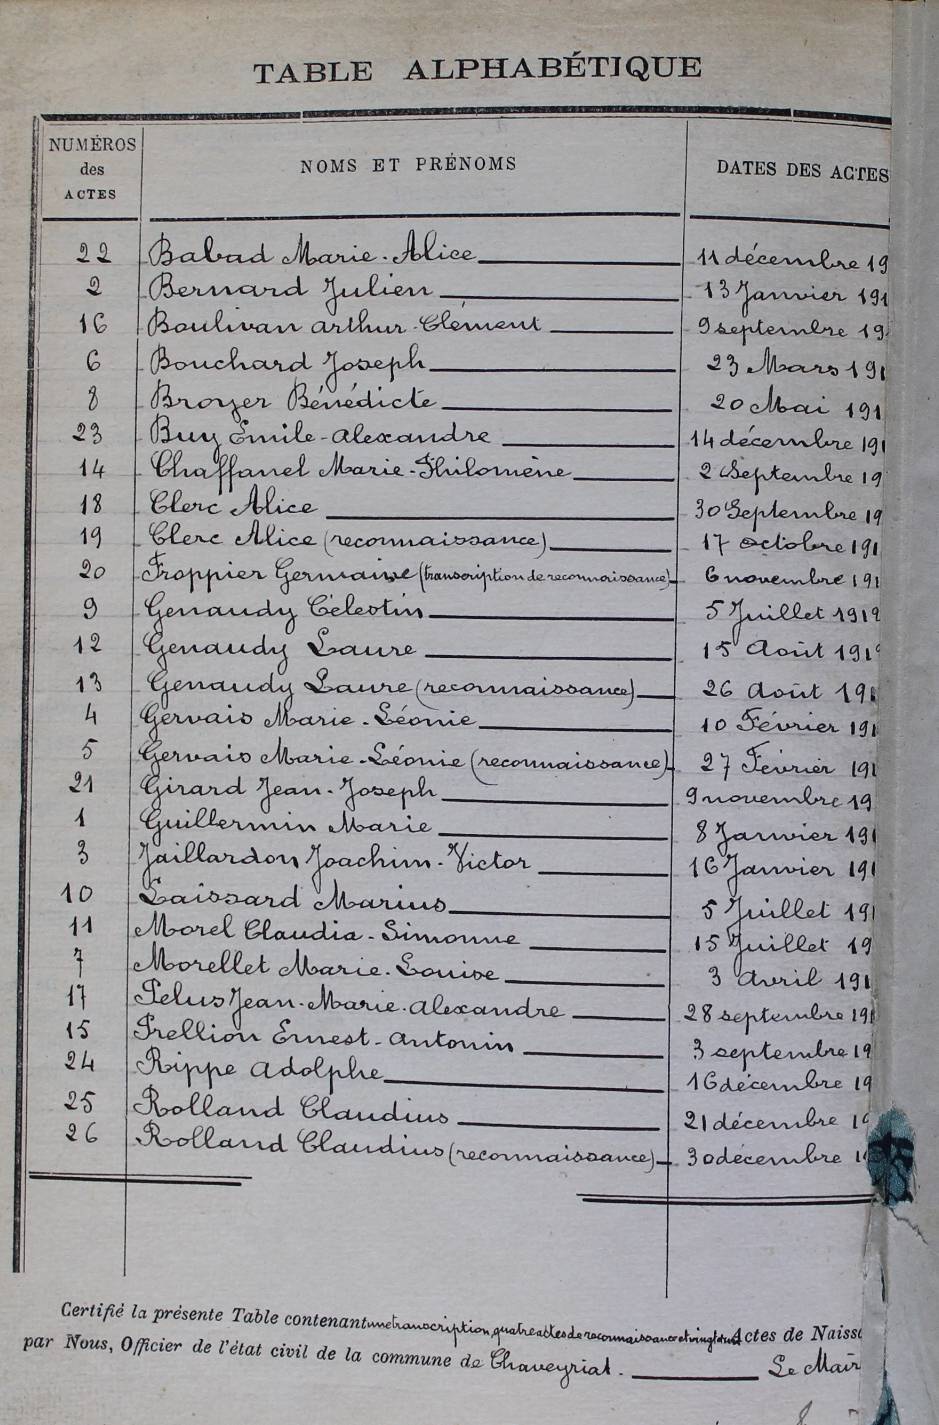 TABLE ALPHABÉTIQUE
NUMÉROS des ACTES NOMS ET PRÉNOMS DATES DES ACTES
22 Babad Marie-Alice 11 décembre 19
2 Bernard Julien 13 Janvier 191
16 Boulivan arthur-Clément 9 septembre 19
6 Bouchard Joseph 23 Mars 191
8 Broyer Bénédicte 20 Mai 191
23 Buy Emile-alexandre 14 décembre 191
14 Chaffanel Marie-Philomène 2 Septembre 19
18 Clerc Alice 30 Septembre 19
19 Clerc Alice (reconnaissance) 17 octobre 191
20 Froppier Germaine (transcription de reconnaissance) 6 novembre 191
9 Genaudy Célestin 5 Juillet 1912
12 Genaudy Laure 15 Août 191
13 Genaudy Laure (reconnaissance) 26 août 191
4 Gervais Marie-Léonie 10 Février 191
5 Gervais Marie-Léonie (reconnaissance) 27 Février 191
21 Girard Jean-Joseph 9 novembre 19
1 Guillermin Marie 8 Janvier 191
3 Jaillardon Joachim-Victor 16 Janvier 191
10 Laissard Marius 5 Juillet 191
11 Morel Claudia-Simonne 15 Juillet 19
7 Morellet Marie-Louise 3 avril 191
17 Pelus Jean-Marie-alexandre 28 septembre 191
15 Prellion Ernest-antonin 3 septembre 19
24 Rippe adolphe 16 décembre 19
25 Rolland Claudius 21 décembre 19
26 Rolland Claudius (reconnaissance) 30 décembre 1
Certifié la présente Table contenant une transcription, quatre actes de reconnaissance et vingt et un Actes de Naiss
par Nous, Officier de l'état civil de la commune de Chaveyriat. Le Mair